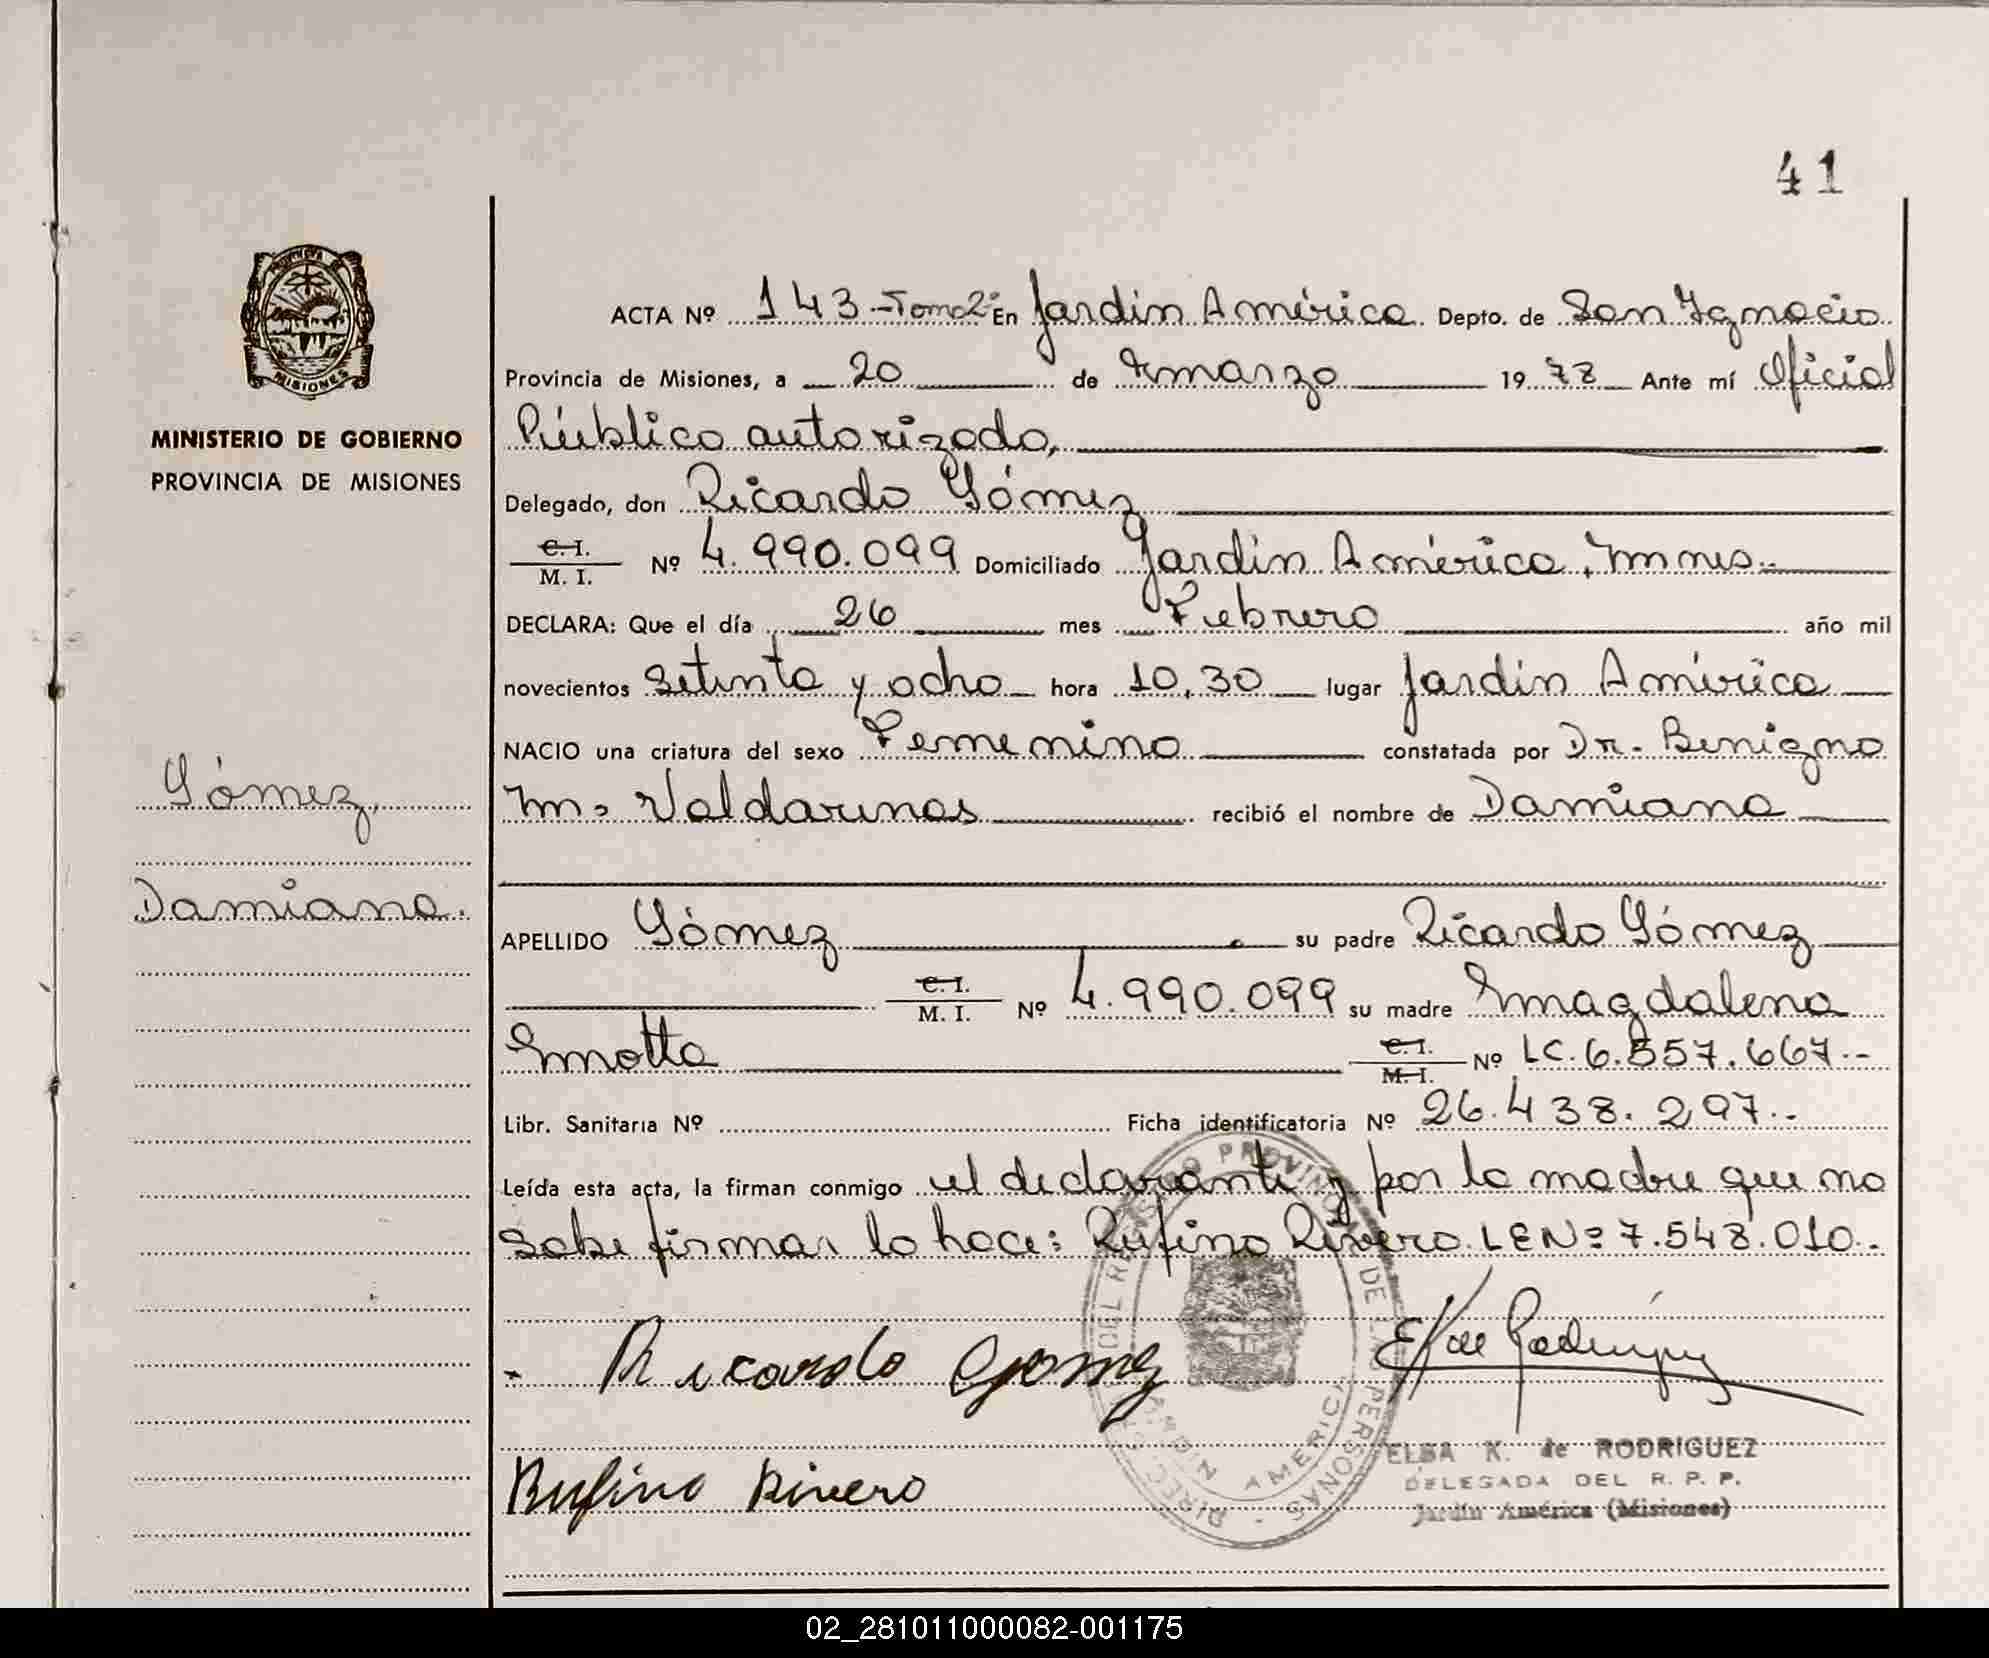 41
PROVINCIA DE
MISIONES
MINISTERIO DE GOBIERNO
PROVINCIA DE MISIONES
Gómez,
Damiana.
ACTA Nº 143 - Tomo 2º En Jardín América Depto. de San Ignacio
Provincia de Misiones, a 20 de marzo 1978 Ante mí Oficial
Público autorizado,
Delegado, don Ricardo Gómez
C. I.
M. I. Nº 4.990.099 Domiciliado Jardín América, Mnes.-
DECLARA: Que el día 26 mes Febrero año mil
novecientos setenta y ocho hora 10,30 lugar Jardín América
NACIO una criatura del sexo Femenino constatada por Dr. Benigno
M. Valdarenas recibió el nombre de Damiana
APELLIDO Gómez su padre Ricardo Gómez
C. I.
M. I. Nº 4.990.099 su madre Magdalena
Motta C. I.
M. I. Nº LC. 6.557.667.-
Libr. Sanitaria Nº Ficha identificatoria Nº 26.438.297.-
Leída esta acta, la firman conmigo el declarante y por la madre que no
sabe firmar lo hace: Rufino Rivero LE Nº 7.548.010.-
Ricardo Gomez
E K de Rodriguez
Rufino Rivero
DIREC. DEL REGISTRO PROVINCIAL DE LAS PERSONAS
JARDIN AMERICA
ELSA K. de RODRIGUEZ
DELEGADA DEL R. P. P.
Jardín América (Misiones)
02_281011000082-001175